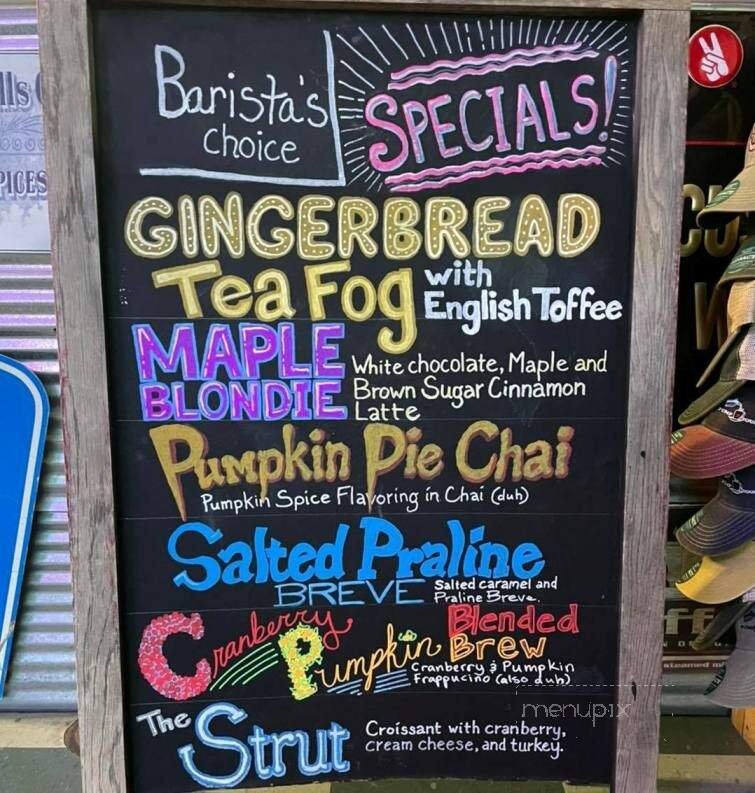 Barista's
choice
SPECIALS!
GINGERBREAD
Tea Fog with
English Toffee
MAPLE
BLONDIE
White chocolate, Maple and
Brown Sugar Cinnamon
Latte
Pumpkin Pie Chai
Pumpkin Spice Flavoring in Chai (duh)
Salted Praline
BREVE
Salted caramel and
Praline Breve.
Cranberry
Pumpkin
Blended
Brew
Cranberry & Pumpkin
Frappucino (also duh)
The
Strut
Croissant with cranberry,
cream cheese, and turkey.
menupix